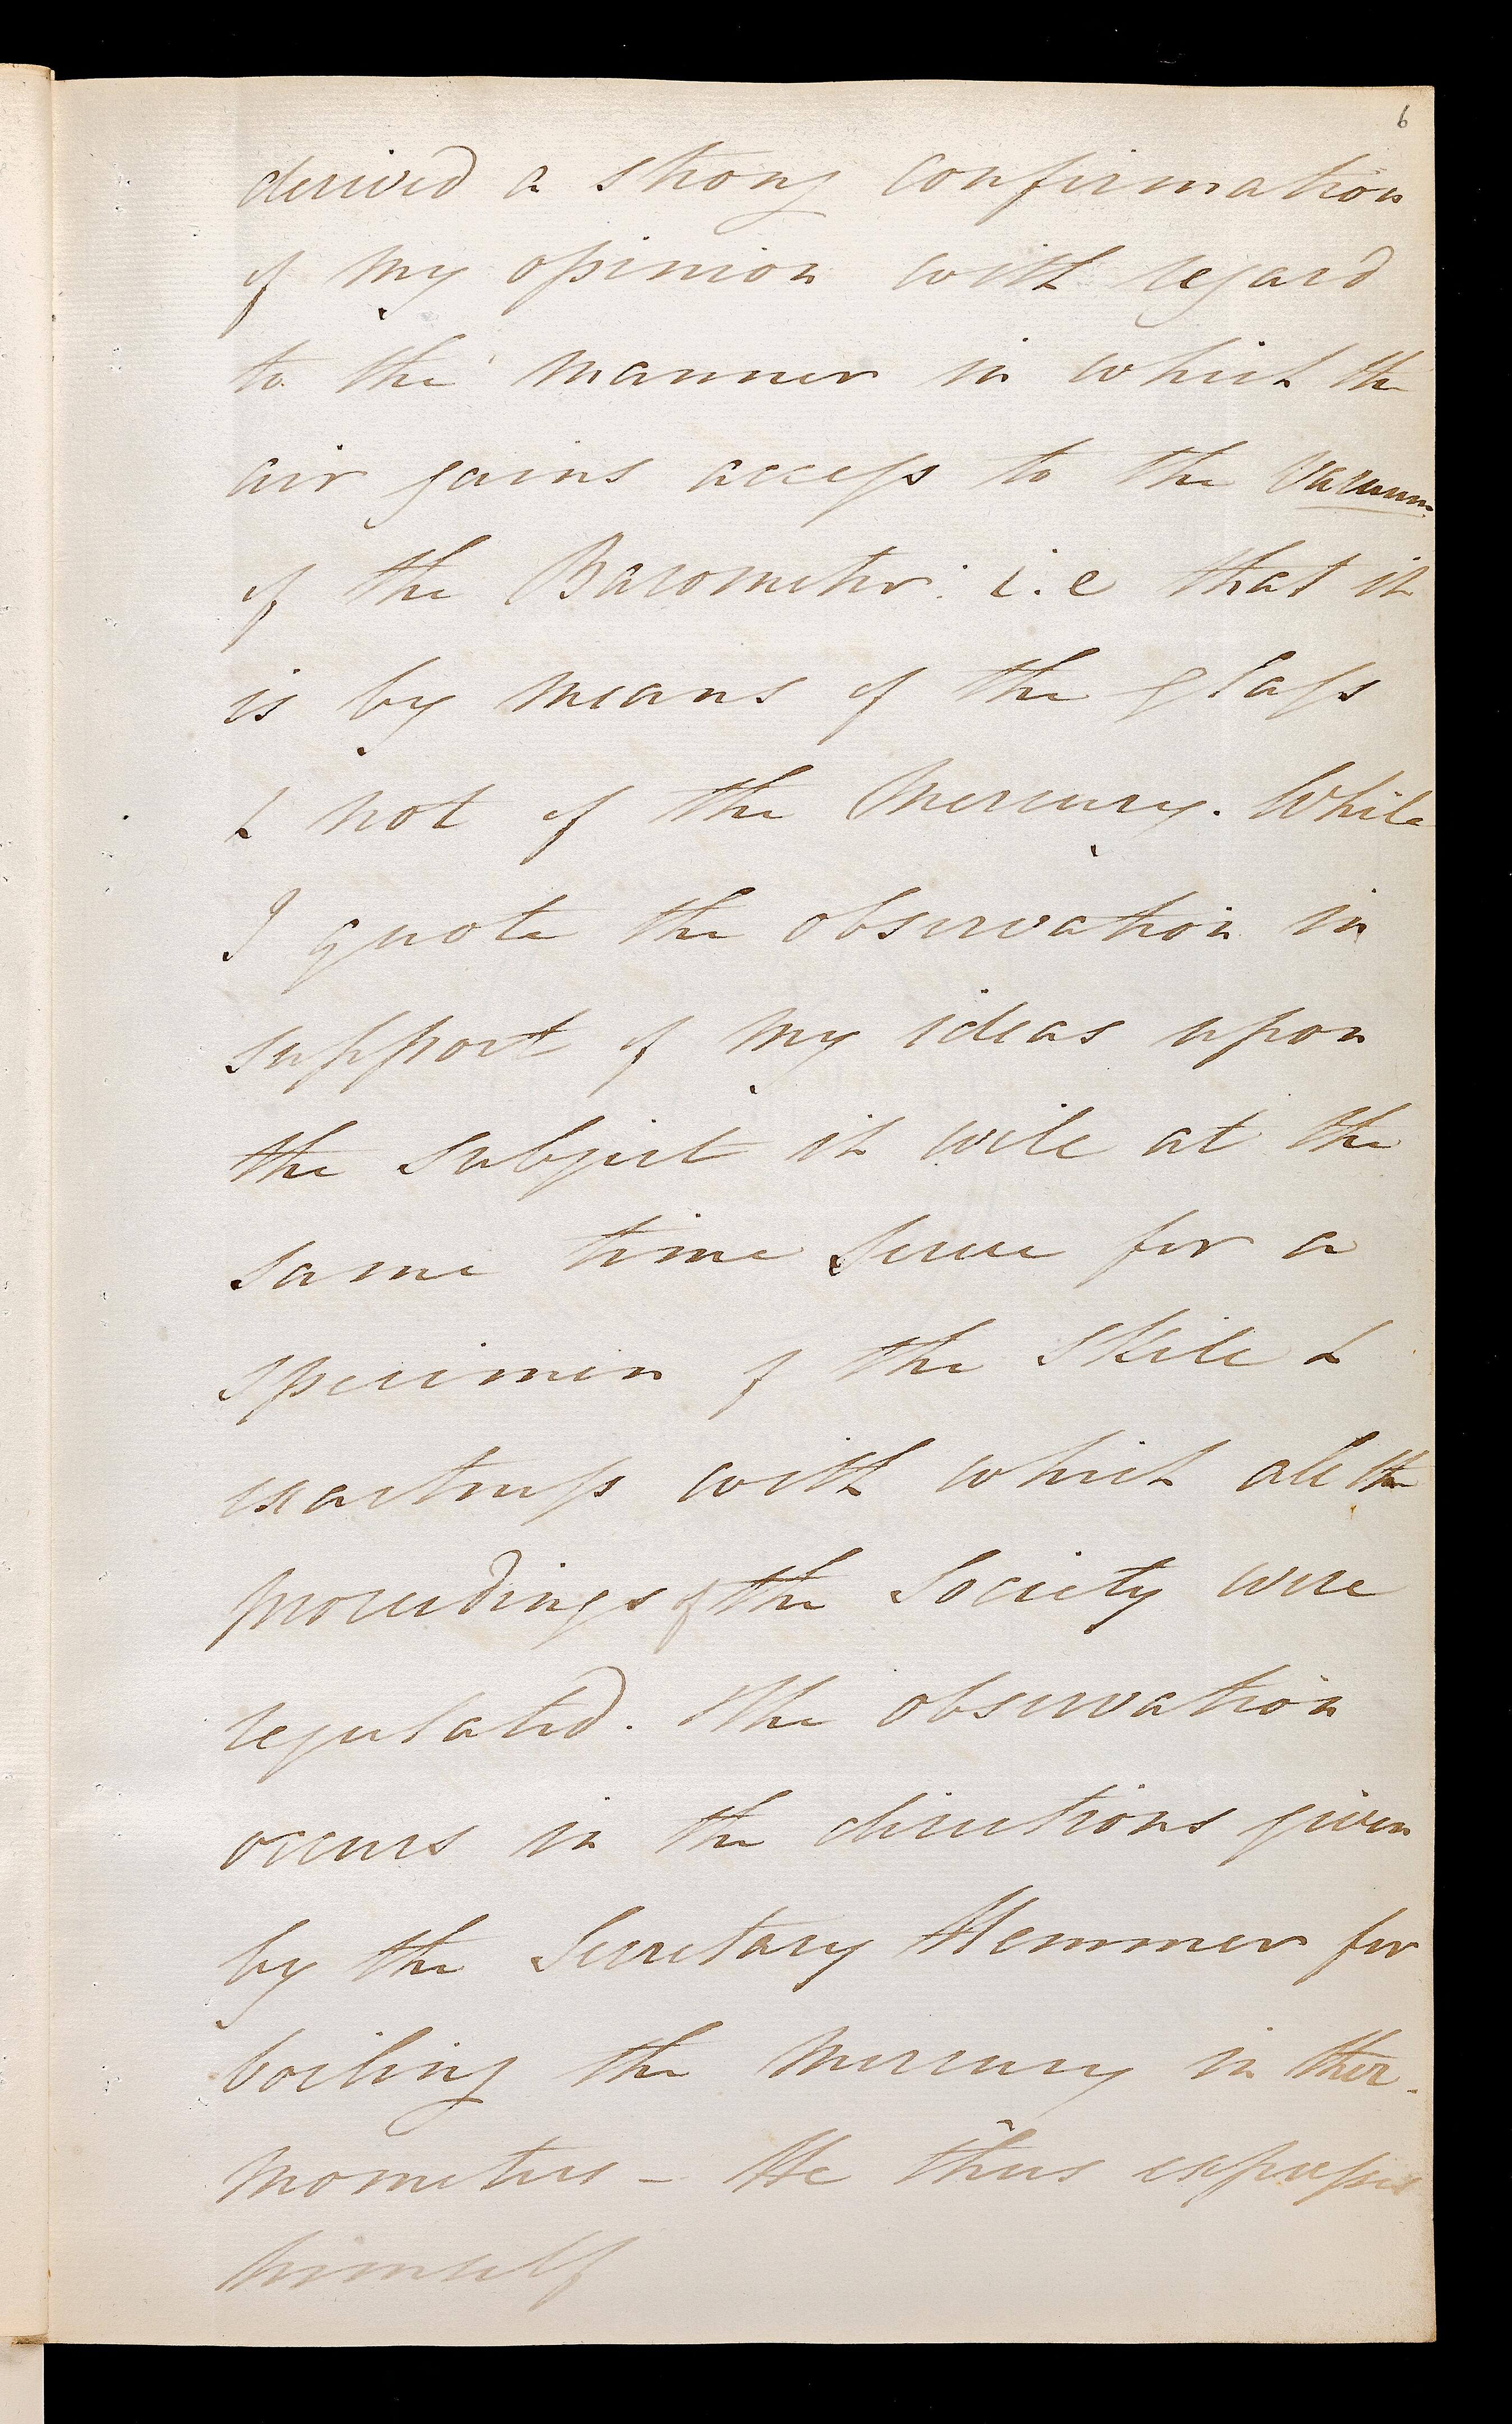 6
derived a strong confirmation
of my opinion with regard
to the manner in which the
air gains access to the vacuum
of the Barometer: i.e that it
is by means of the glass
& not of the Mercury. While
I quote the observation in
support of my ideas upon
the subject it will at the
same time serve for a
specimen of the skill &
exactness with which all the
proceedings of the Society were
regulated. The observation
occurs in the directions given
by the Secretary Hemmer for
boiling the Mercury in ther-
mometers - He thus expresses
himself